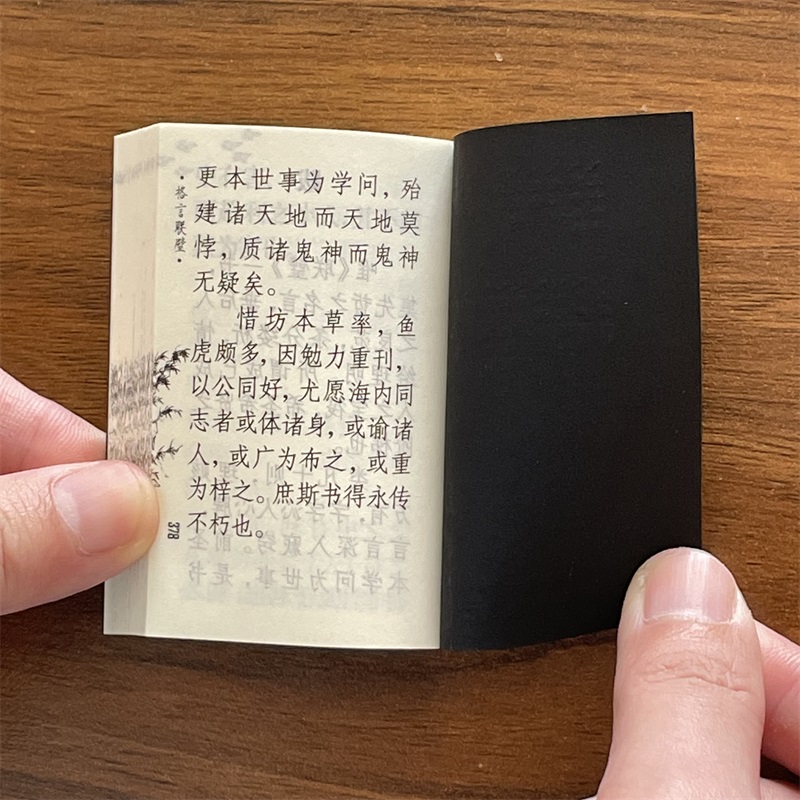 更本世事为学问，殆
建诸天地而天地莫
悖，质诸鬼神而鬼神
无疑矣。
惜坊本草率，鱼
虎颇多，因勉力重刊，
以公同好，尤愿海内同
志者或体诸身，或谕诸
人，或广为布之，或重
为梓之。庶斯书得永传
不朽也。
·格言联璧·
378